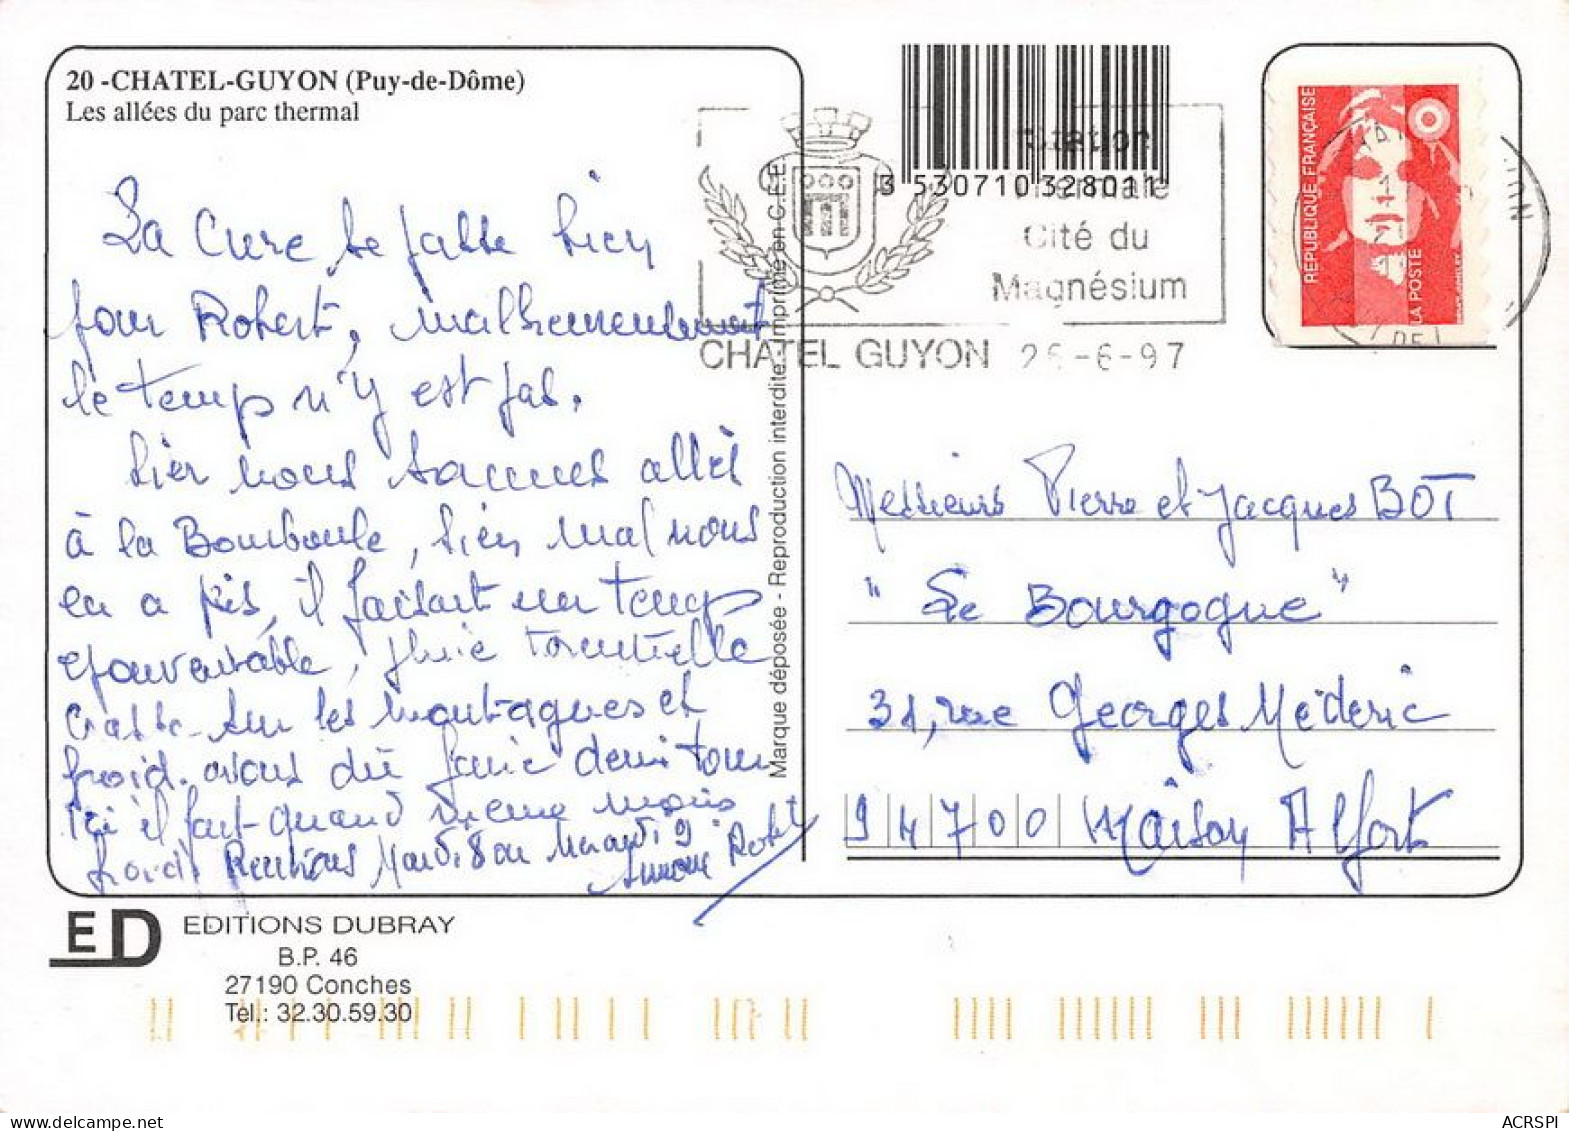 20 -CHATEL-GUYON (Puy-de-Dôme)
Les allées du parc thermal
La Cure se passe bien
pour Robert, malheureusement
le temps n'y est pas.
Hier nous sommes allés
à la Bourboule, bien mal nous
en a pris, il faisait un temps
épouvantable, pluie torrentielle
sur les montagnes et
froid. avons dû faire demi tour
Ici il fait quand même moins
froid. Mardi 8 ou Mercredi 9
Simone Robert
Marque déposée - Reproduction interdite. Imprimé en C.E.E
3 530710 328011
Station
Thermale
Cité du
Magnésium
CHATEL GUYON 26-6-97
RÉPUBLIQUE FRANÇAISE
LA POSTE
Messieurs Pierre et Jacques BOT
"Le Bourgogne"
31, rue Georges Méderic
94700 Maison Alfort
ED
EDITIONS DUBRAY
B.P. 46
27190 Conches
Tél.: 32.30.59.30
delcampe.net
ACRSPI